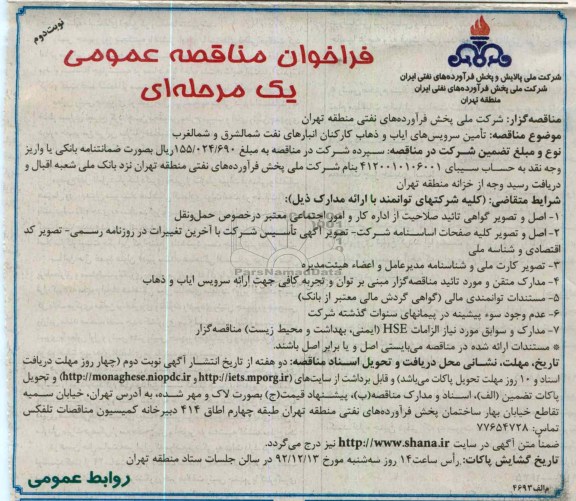 نوبت دوم
فراخوان مناقصه عمومی
یک مرحله‌ای
شرکت ملی پالایش و پخش فرآورده‌های نفتی ایران
شرکت ملی پخش فرآورده‌های نفتی ایران
منطقه تهران
مناقصه‌گزار: شرکت ملی پخش فرآورده‌های نفتی منطقه تهران
موضوع مناقصه: تأمین سرویس‌های ایاب و ذهاب کارکنان انبارهای نفت شمالشرق و شمالغرب
نوع و مبلغ تضمین شرکت در مناقصه: سپرده شرکت در مناقصه به مبلغ ۱۵۵/۰۲۴/۶۹۰ریال بصورت ضمانتنامه بانکی یا واریز
وجه نقد به حساب سیبای ۴۱۲۰۰۱۰۱۰۶۰۰۱ بنام شرکت ملی پخش فرآورده‌های نفتی منطقه تهران نزد بانک ملی شعبه اقبال و
دریافت رسید وجه از خزانه منطقه تهران
شرایط متقاضی: (کلیه شرکتهای توانمند با ارائه مدارک ذیل):
۱- اصل و تصویر گواهی تائید صلاحیت از اداره کار و امور اجتماعی معتبر درخصوص حمل‌ونقل
۲- اصل و تصویر کلیه صفحات اساسنامه شرکت- تصویر آگهی تأسیس شرکت با آخرین تغییرات در روزنامه رسمی- تصویر کد
اقتصادی و شناسه ملی
۳- تصویر کارت ملی و شناسنامه مدیرعامل و اعضاء هیئت‌مدیره
۴- مدارک متقن و مورد تائید مناقصه‌گزار مبنی بر توان و تجربه کافی جهت ارائه سرویس ایاب و ذهاب
۵- مستندات توانمندی مالی (گواهی گردش مالی معتبر از بانک)
۶- عدم وجود سوء پیشینه در پیمانهای سنوات گذشته شرکت
۷- مدارک و سوابق مورد نیاز الزامات HSE (ایمنی، بهداشت و محیط زیست) مناقصه‌گزار
* مستندات ارائه شده در مناقصه می‌بایستی اصل و یا برابر اصل باشند.
تاریخ، مهلت، نشانی محل دریافت و تحویل اسناد مناقصه: دو هفته از تاریخ انتشار آگهی نوبت دوم (چهار روز مهلت دریافت
اسناد و ۱۰ روز مهلت تحویل پاکات می‌باشد) و قابل برداشت از سایت‌های (http://iets.mporg.ir و http://monaghese.niopdc.ir) و تحویل
پاکات تضمین (الف)، اسناد و مدارک مناقصه(ب)، پیشنهاد قیمت(ج) بصورت لاک و مهر شده، به آدرس تهران، خیابان سمیه
تقاطع خیابان بهار ساختمان پخش فرآورده‌های نفتی منطقه تهران طبقه چهارم اطاق ۴۱۴ دبیرخانه کمیسیون مناقصات تلفکس
تماس: ۷۷۶۵۴۷۲۸
ضمناً متن آگهی در سایت http://www.shana.ir نیز درج می‌گردد.
تاریخ گشایش پاکات: رأس ساعت۱۴ روز سه‌شنبه مورخ ۹۲/۱۲/۱۳ در سالن جلسات ستاد منطقه تهران
روابط عمومی
م‌الف۴۶۹۳
ParsNamadData